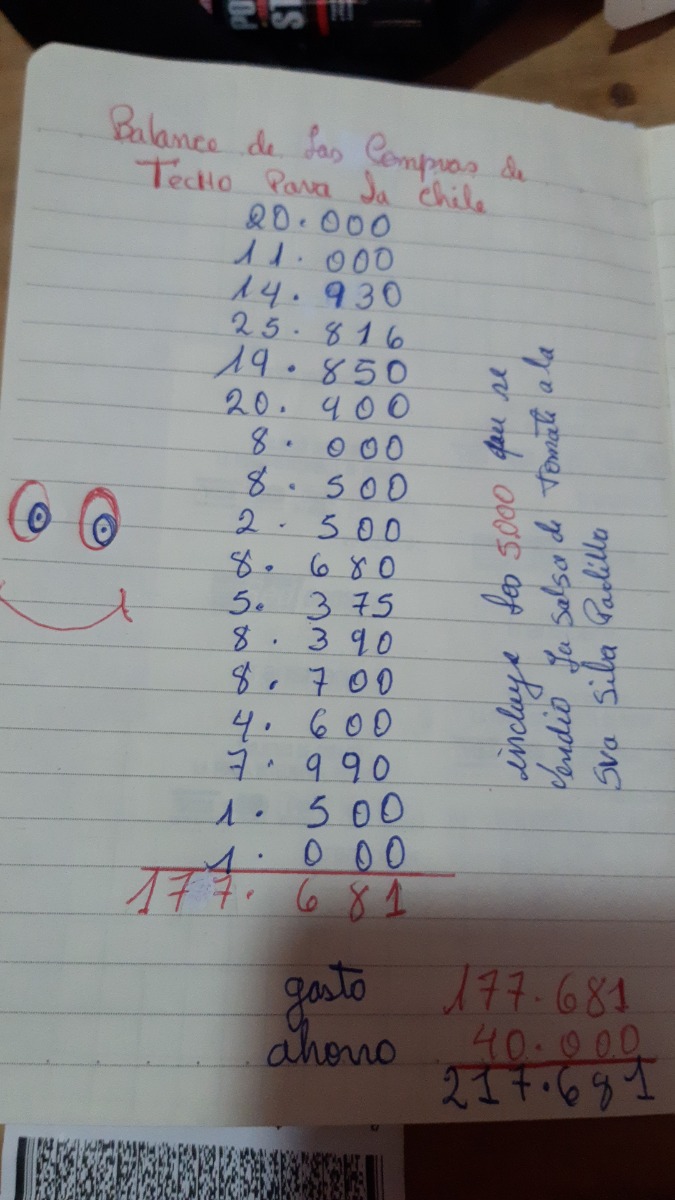 Balance de las Compras de
Techo Para la chile
20.000
11.000
14.930
25.816
19.850
20.400
8.000
8.500
2.500
8.680
5.375
8.390
8.700
4.600
7.990
1.500
1.000
177.681
incluye los 5.000 que se
vendio la salsa de tomate a la
sra silva Padilla
gasto 177.681
ahorro 40.000
217.681